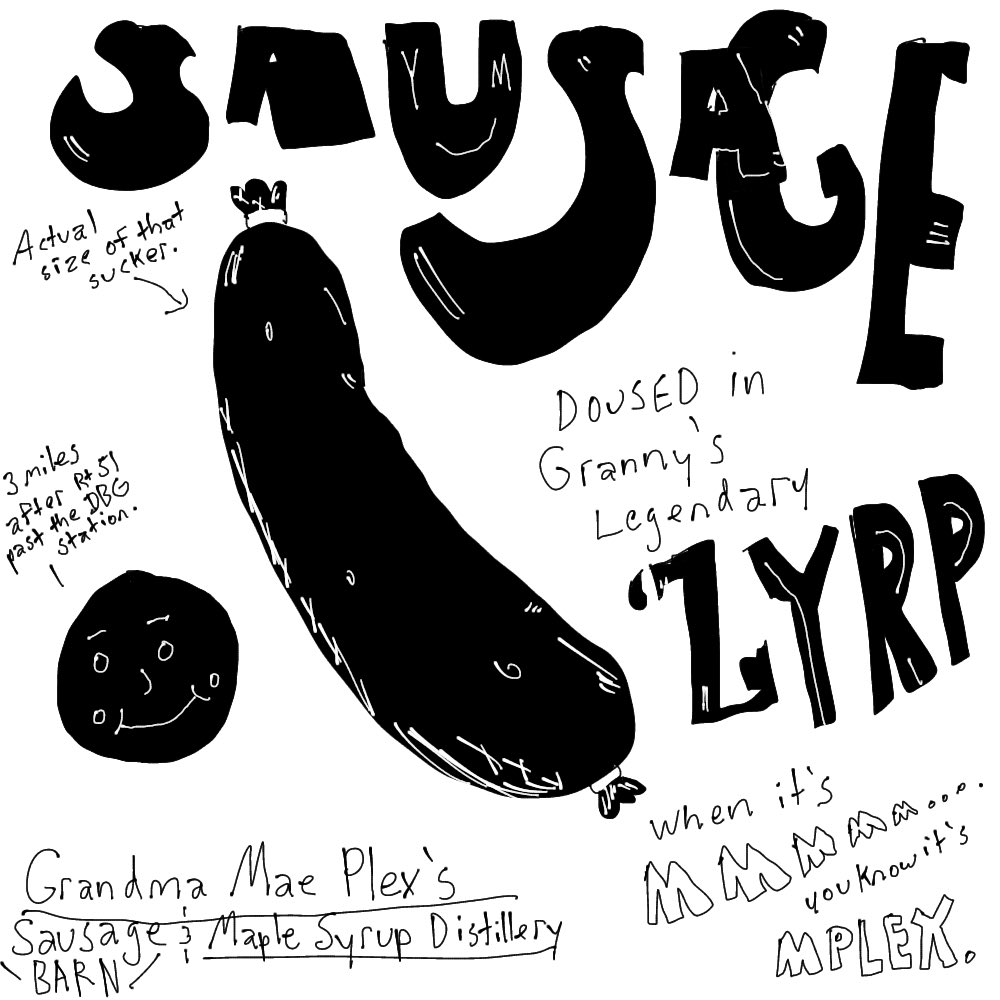 SAUSAGE
YM
Actual
size of that
sucker.
DOUSED in
Granny's
Legendary
'ZYRP
3 miles
after Rt 51
past the DBG
station.
When it's
MMMMm....
you know it's
MPLEX.
Grandma Mae Plex's
Sausage & Maple Syrup Distillery
BARN